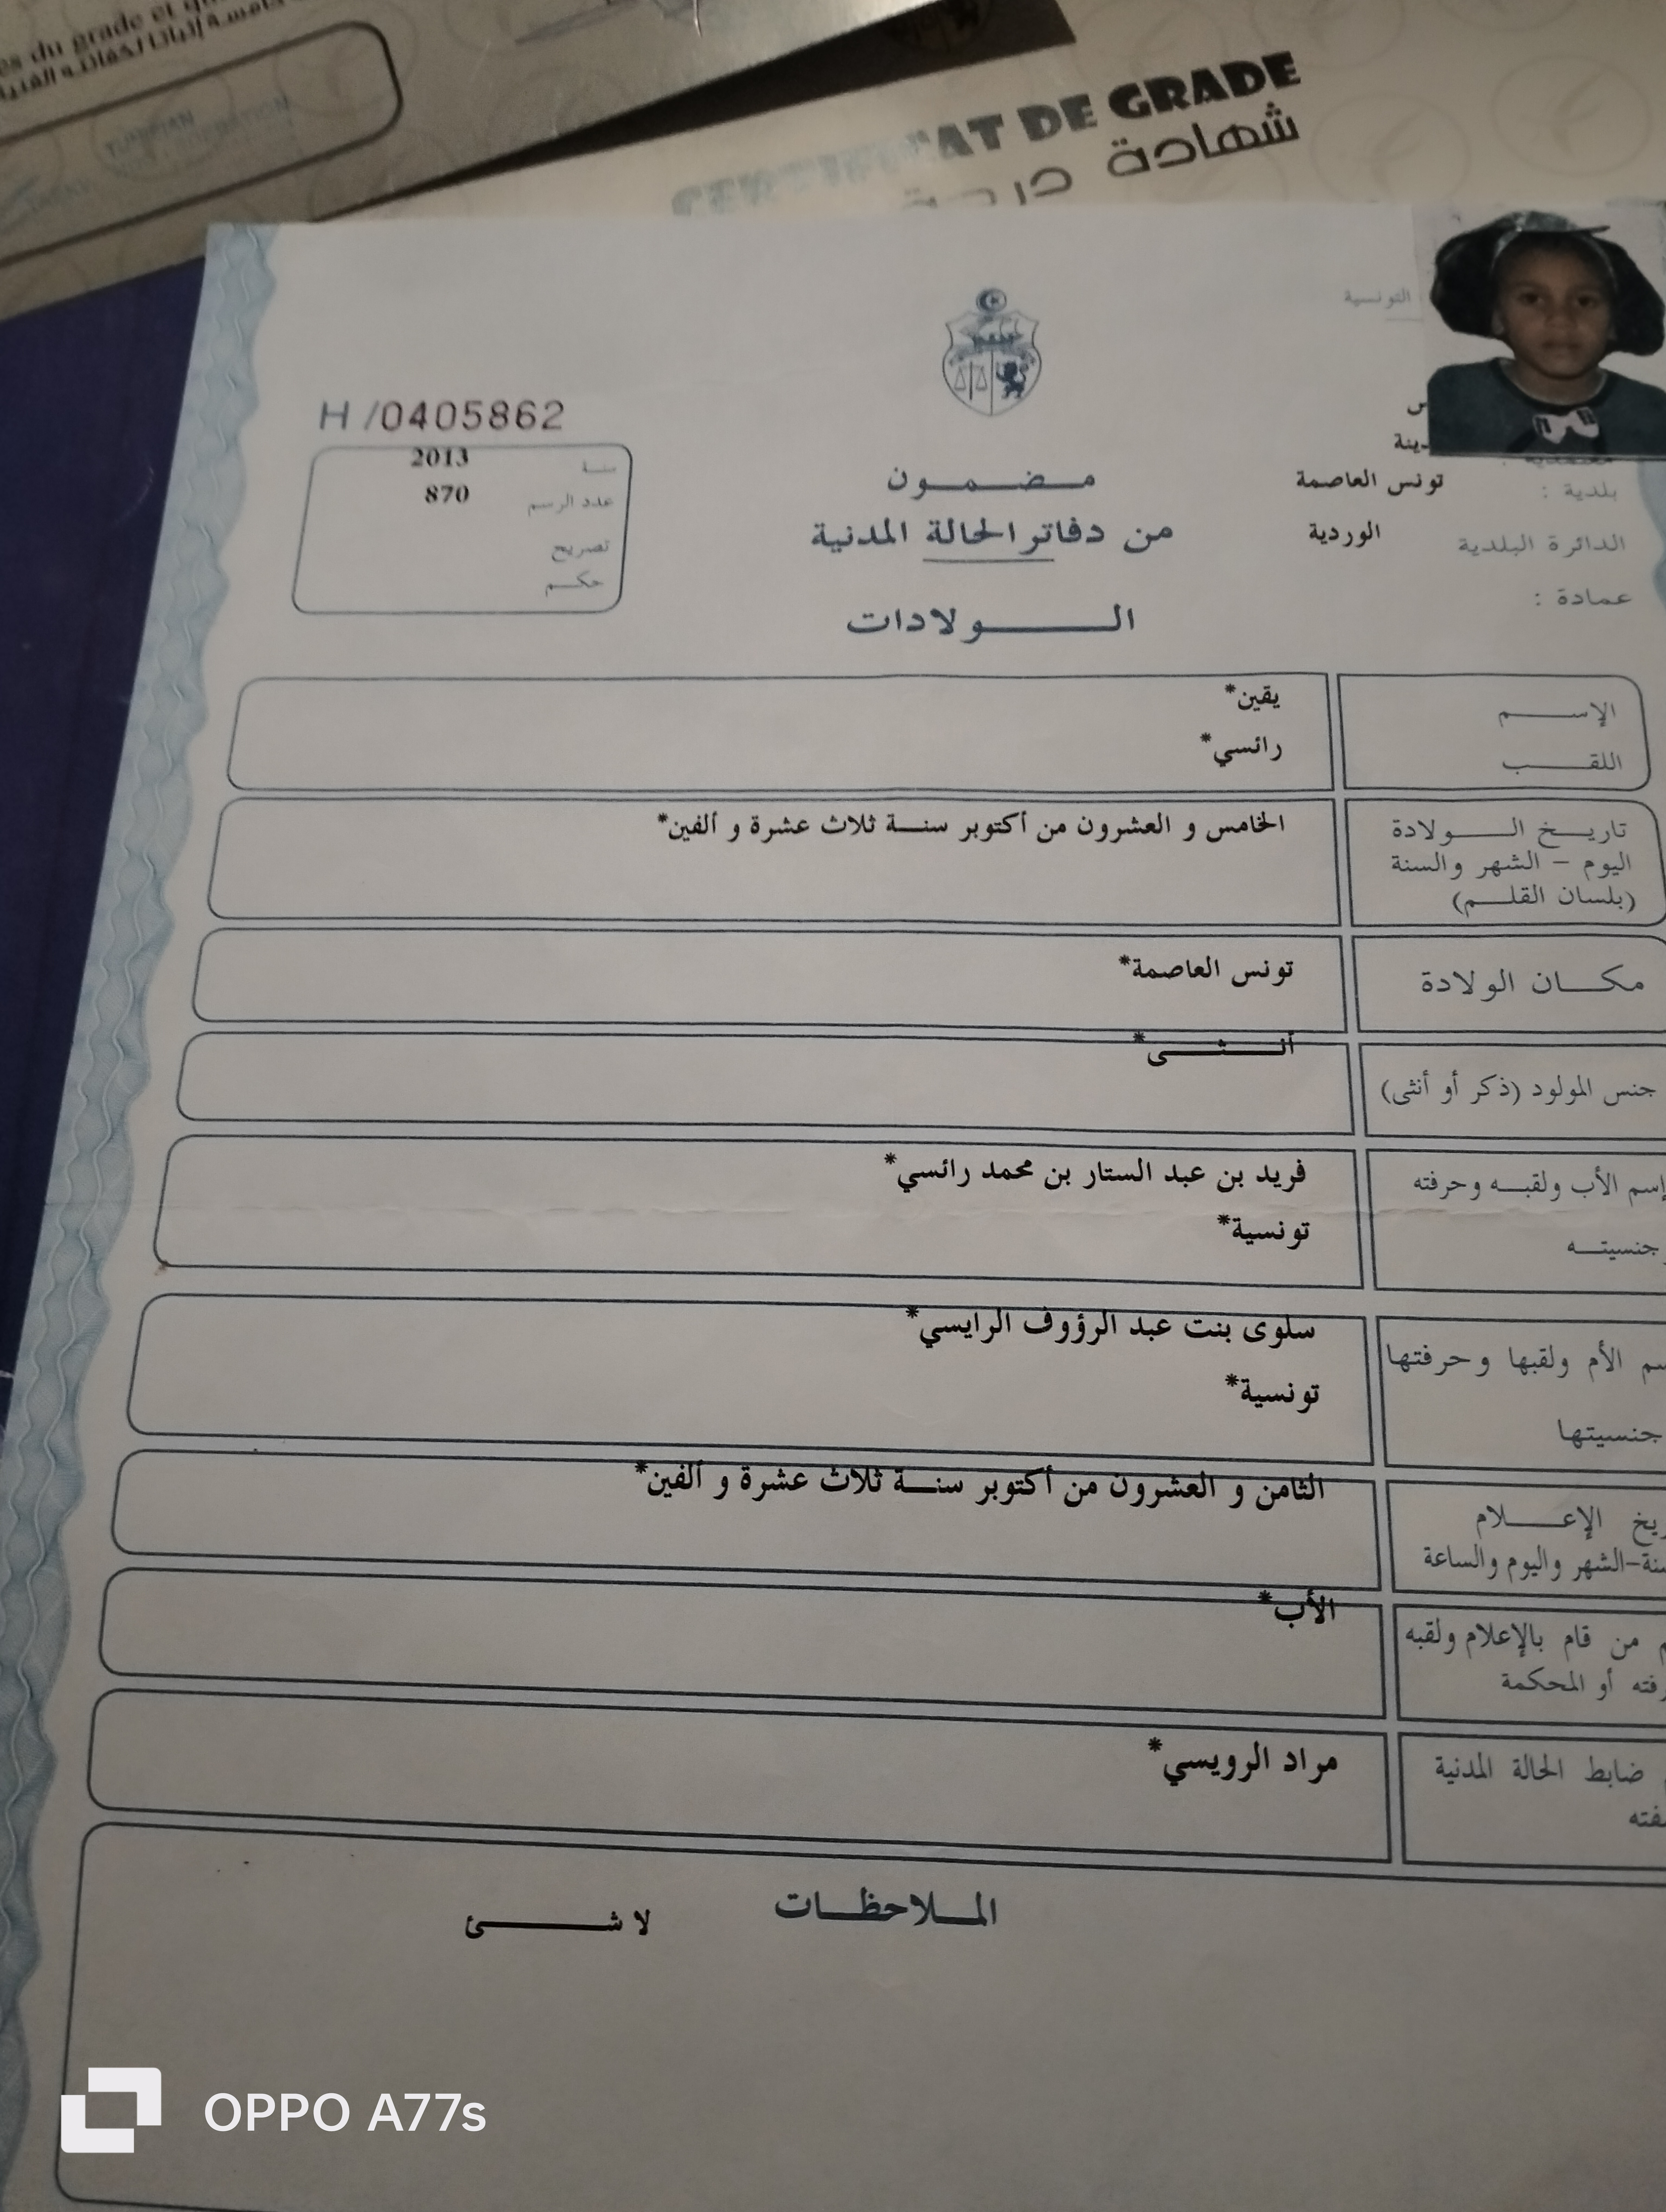 es du grade et qu
CERTIFICAT DE GRADE
شهادة درجة
التونسية
H /0405862
سنة 2013
عدد الرسم 870
تصريح
حكم
مضمون
من دفاتر الحالة المدنية
الولادات
بلدية : تونس العاصمة
الدائرة البلدية الوردية
عمادة :
الإسم يقين*
اللقب رائسي*
تاريخ الولادة الخامس و العشرون من أكتوبر سنة ثلاث عشرة و ألفين*
اليوم - الشهر والسنة
(بلسان القلم)
مكان الولادة تونس العاصمة*
جنس المولود (ذكر أو أنثى) أنثى*
إسم الأب ولقبه وحرفته فريد بن عبد الستار بن محمد رائسي*
جنسيته تونسية*
سم الأم ولقبها وحرفتها سلوى بنت عبد الرؤوف الرايسي*
جنسيتها تونسية*
ريخ الإعلام الثامن و العشرون من أكتوبر سنة ثلاث عشرة و ألفين*
سنة-الشهر واليوم والساعة
م من قام بالإعلام ولقبه الأب*
رفته أو المحكمة
م ضابط الحالة المدنية مراد الرويسي*
فته
الملاحظات لا شئ
OPPO A77s